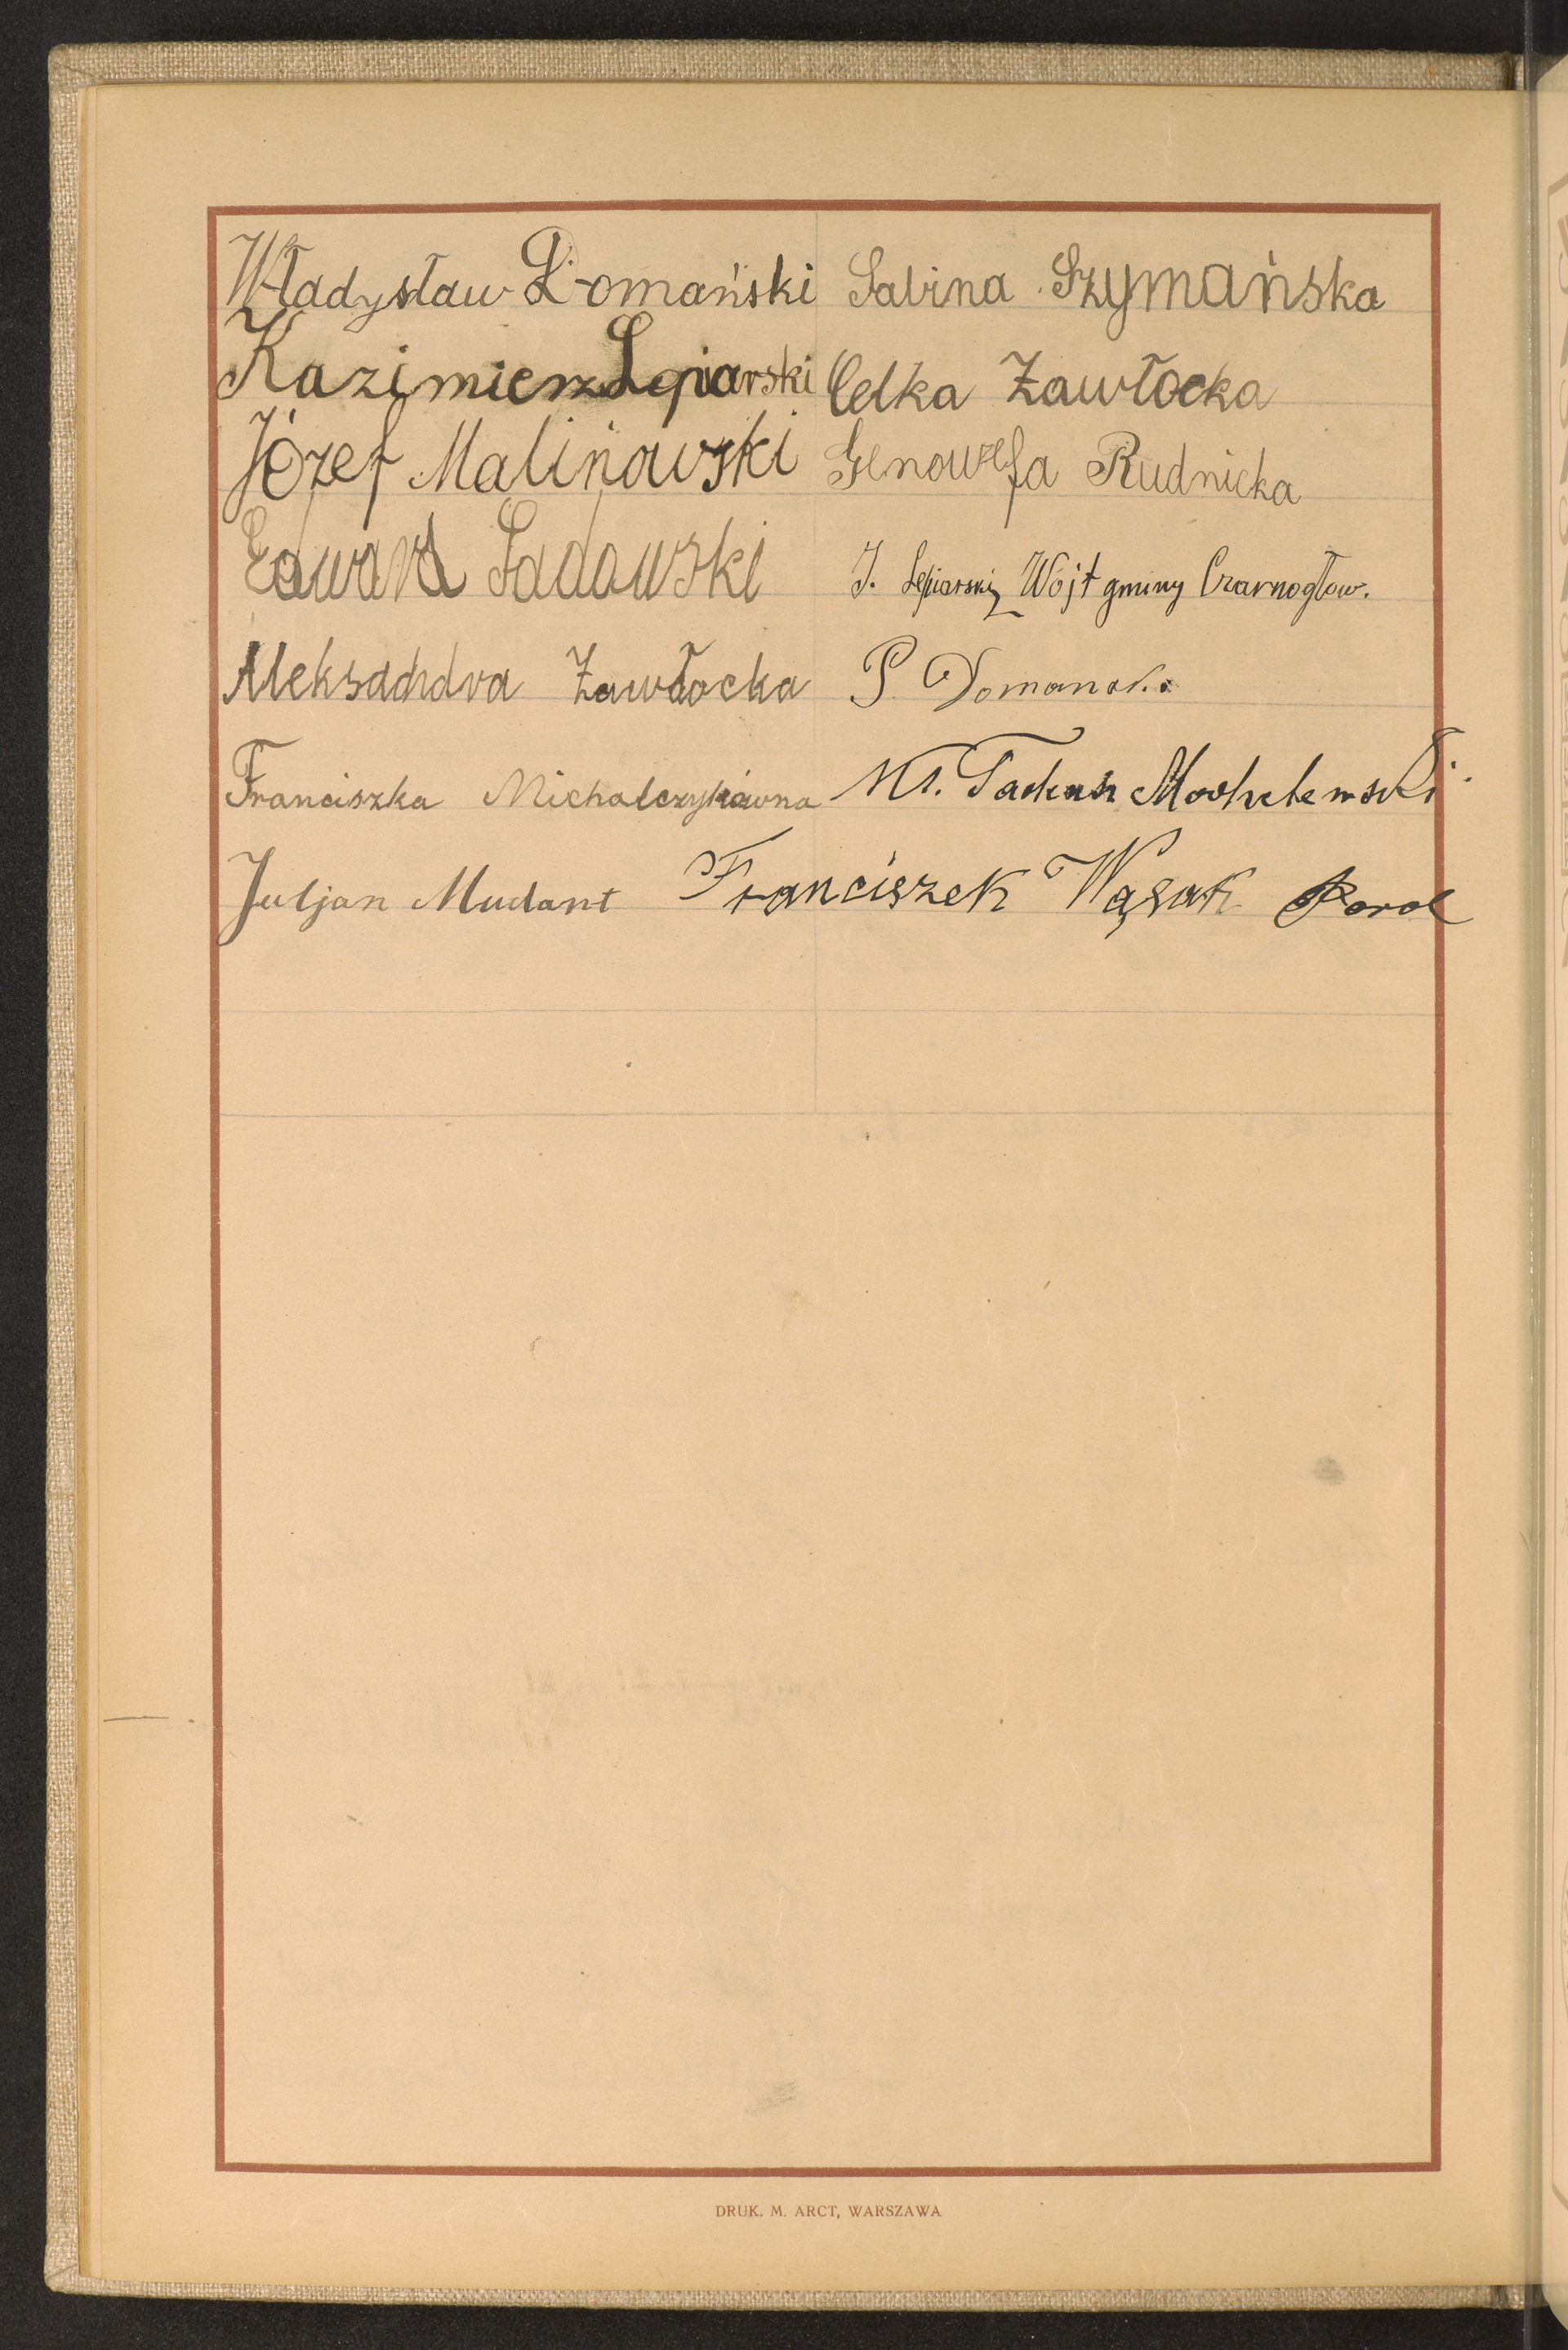 Władysław Domański Sabina Szymańska
Kazimierz Lepiarski Celka Zawłocka
Józef Malinowski Genowefa Rudnicka
Edward Sadowski J. Lepiarski Wójt gminy Czarnogłow.
Aleksandra Zawłocka P. Domańska
Franciszka Michalczykówna Ks. Tadeusz
Juljan Mudant Franciszek Wąsak Karol
DRUK. M. ARCT, WARSZAWA